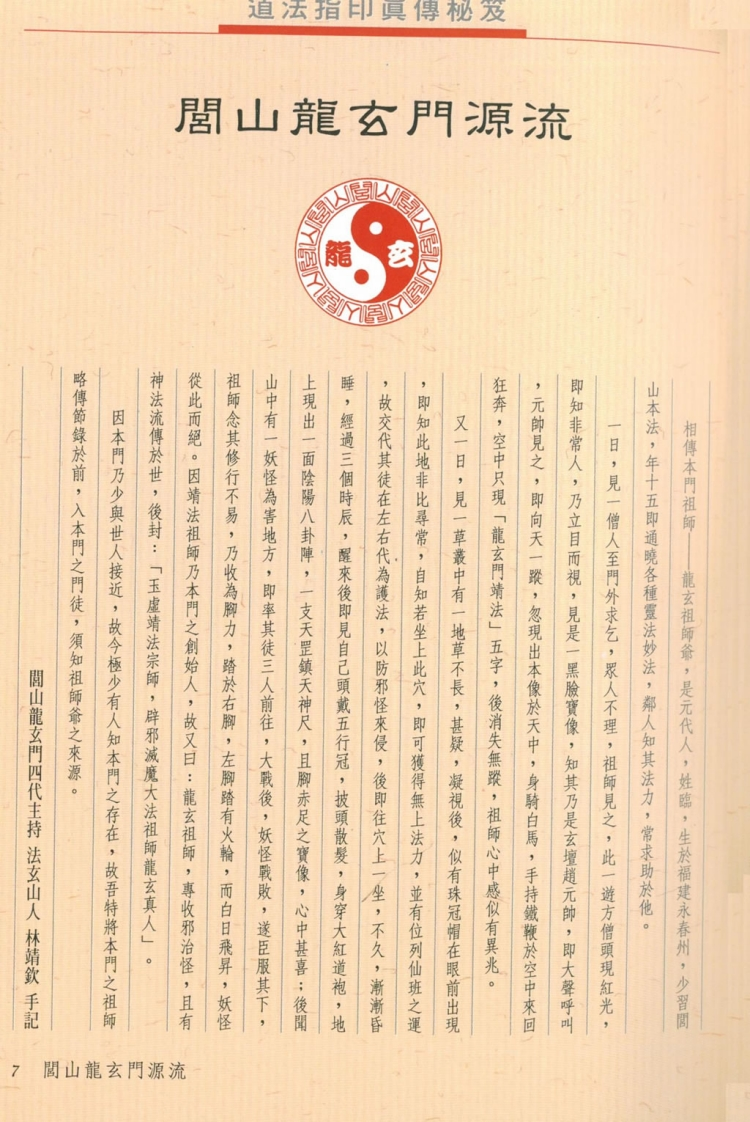 道法指印眞傳秘笈
閭山龍玄門源流
龍
玄
相傳本門祖師——龍玄祖師爺，是元代人，姓臨，生於福建永春州，少習閭
山本法，年十五即通曉各種靈法妙法，鄰人知其法力，常求助於他。
一日，見一僧人至門外求乞，眾人不理，祖師見之，此一遊方僧頭現紅光，
即知非常人，乃立目而視，見是一黑臉寶像，知其乃是玄壇趙元帥，即大聲呼叫
，元帥見之，即向天一蹤，忽現出本像於天中，身騎白馬，手持鐵鞭於空中來回
狂奔，空中只現「龍玄門靖法」五字，後消失無蹤，祖師心中感似有異兆。
又一日，見一草叢中有一地草不長，甚疑，凝視後，似有珠冠帽在眼前出現
，即知此地非比尋常，自知若坐上此穴，即可獲得無上法力，並有位列仙班之運
，故交代其徒在左右代為護法，以防邪怪來侵，後即往穴上一坐，不久，漸漸昏
睡，經過三個時辰，醒來後即見自己頭戴五行冠，披頭散髮，身穿大紅道袍，地
上現出一面陰陽八卦陣，一支天罡鎮天神尺，且腳赤足之寶像，心中甚喜；後聞
山中有一妖怪為害地方，即率其徒三人前往，大戰後，妖怪戰敗，遂臣服其下，
祖師念其修行不易，乃收為腳力，踏於右腳，左腳踏有火輪，而白日飛昇，妖怪
從此而絕。因靖法祖師乃本門之創始人，故又曰：龍玄祖師，專收邪治怪，且有
神法流傳於世，後封：「玉虛靖法宗師，辟邪滅魔大法祖師龍玄真人」。
因本門乃少與世人接近，故今極少有人知本門之存在，故吾特將本門之祖師
略傳節錄於前，入本門之門徒，須知祖師爺之來源。
閭山龍玄門四代主持 法玄山人 林靖欽 手記
7 閭山龍玄門源流